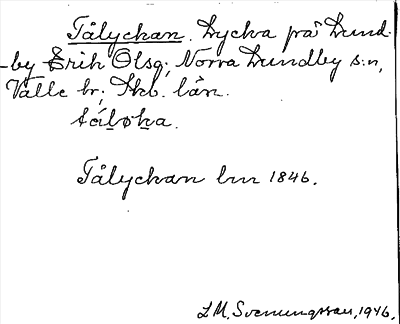 Tålyckan. Lycka på Lund-
by Erik Olsg; Norra Lundby s:n,
Valle hr; Skb. län.
tálɵka.
Tålyckan lm 1846.
L M, Svenungsson, 1946.